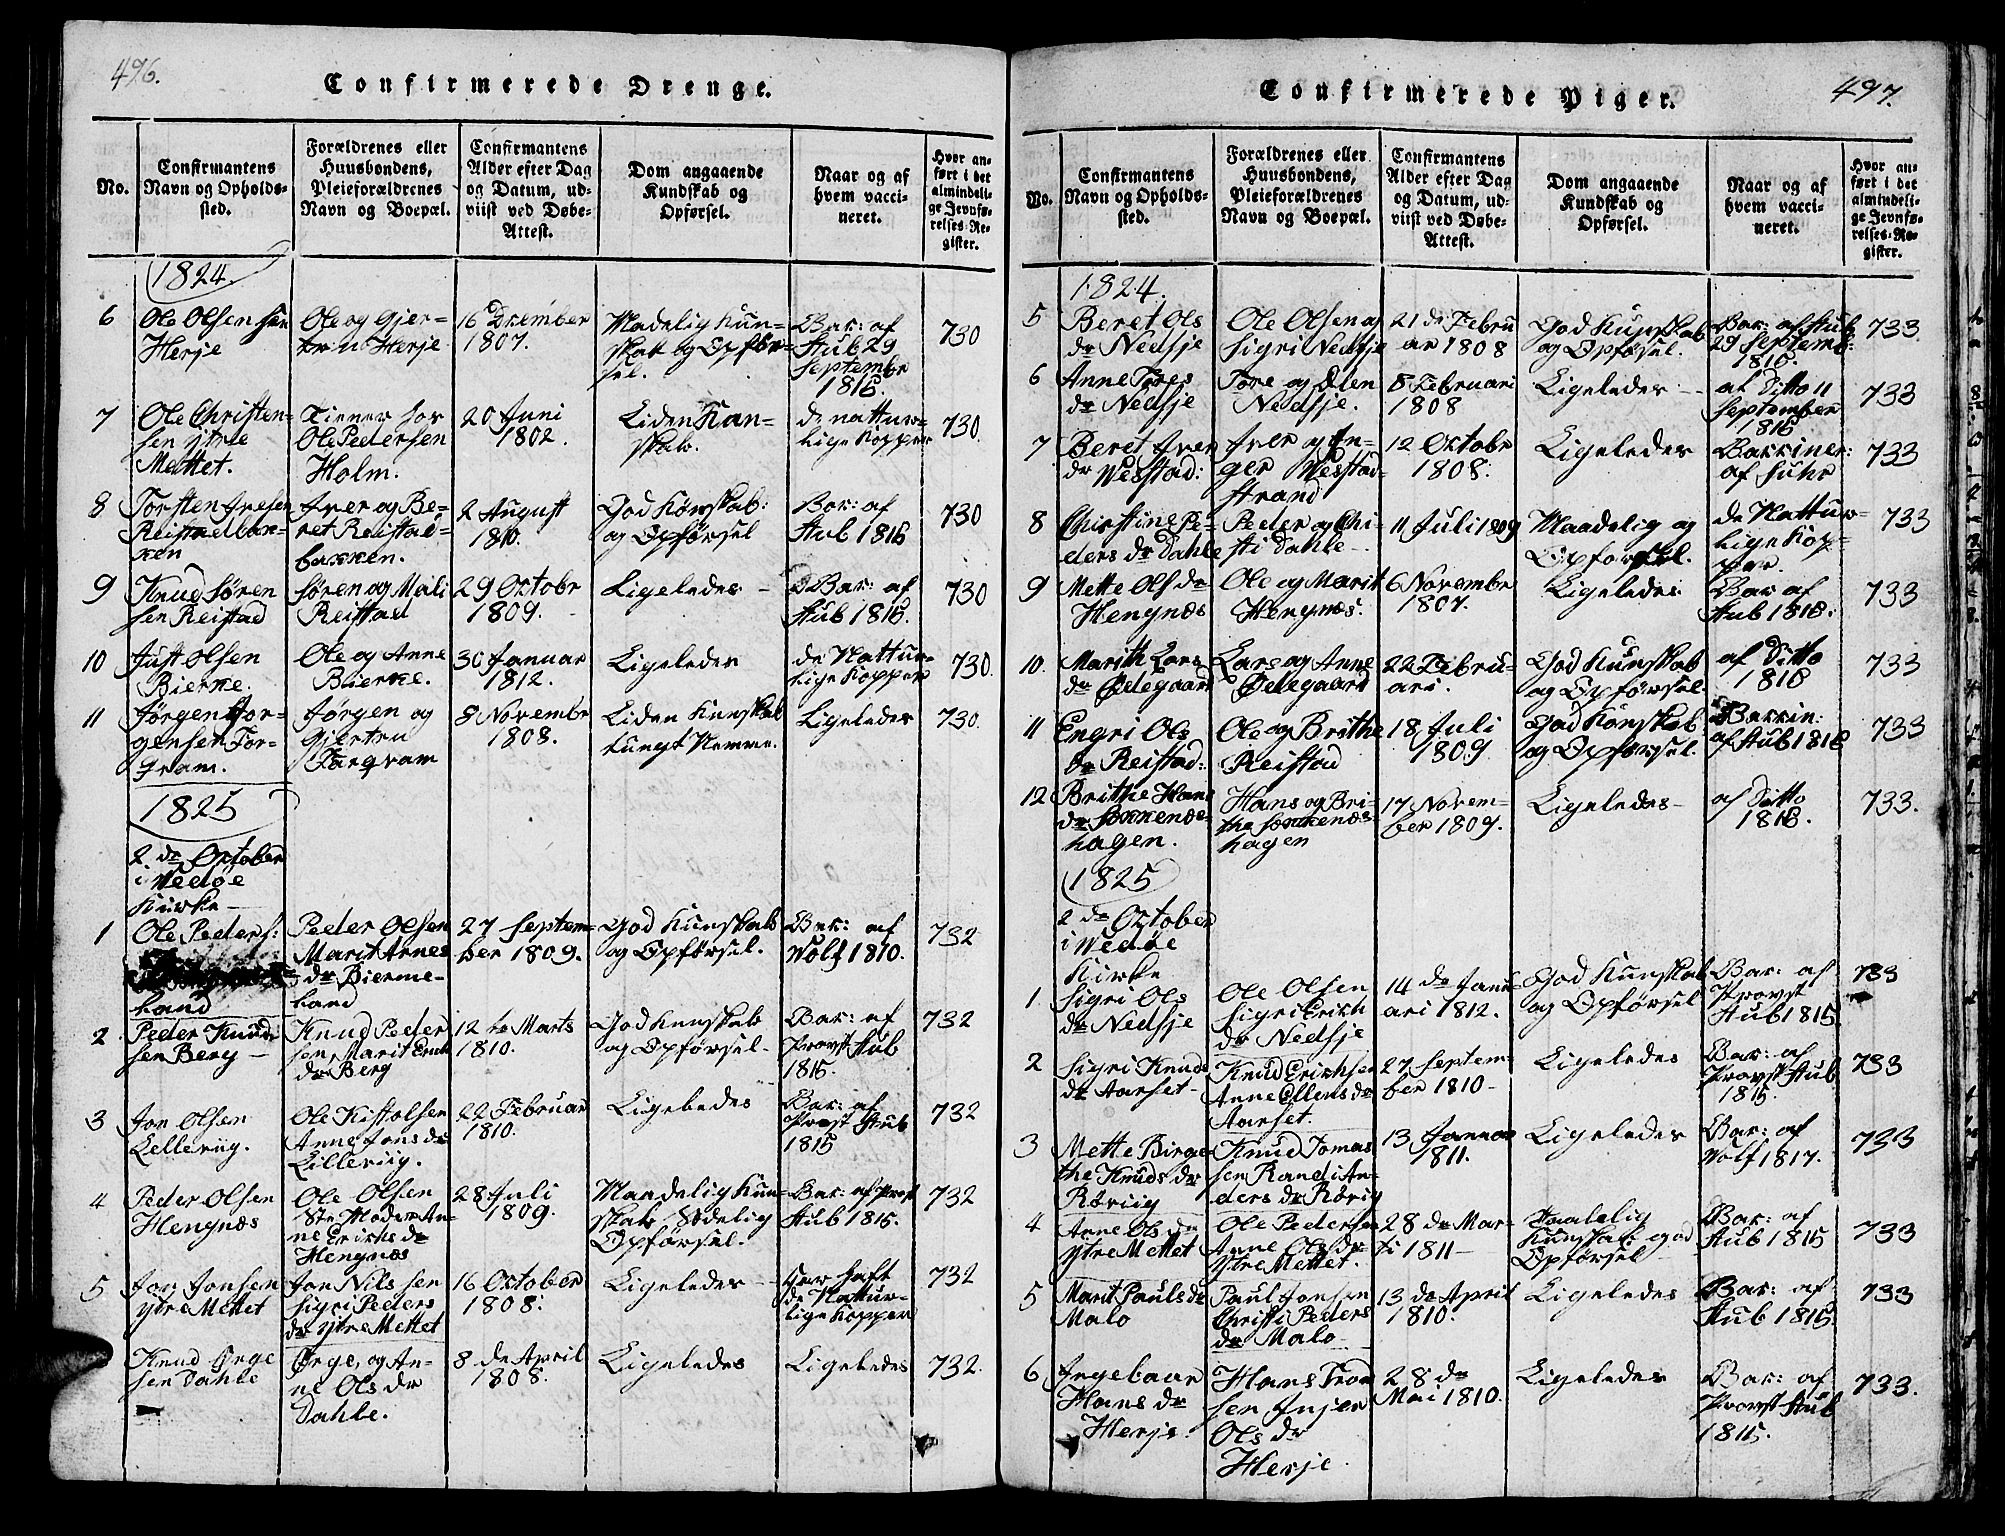 496.
Confirmerede Drenge.
No.
Confirmantens
Navn og Opholds-
sted.
Forældrenes eller
Huusbondens,
Pleieforældrenes
Navn og Boepæl.
Confirmantens
Alder efter Dag
og Datum, ud-
viist ved Døbe-
Attest.
Dom angaaende
Kundskab og
Opførsel.
Naar og af
hvem vacci-
neret.
Hvor an-
ført i det
almindeli-
ge Jevnfø-
relses-Re-
gister.
1824.
6
Ole Olsen
Herje
Ole og Gjer-
Herje
16 December
1807.
Madelig Kun-
skab og Opfør-
sel.
Vac: af
Stub 29
Septembr
1816
730
7
Ole Christen-
sen ytre
Mettet.
Tiener hos
Ole Pedersen
Holm.
20 Juni
1802.
Liden Kun-
skab.
de nattur-
lige Kopper
730.
8
Torsten Iversen
Reistadbak-
ken
Iver og Be-
ret Reistad-
bakken.
2 August
1810.
God Kønskab:
og Opførsel
Vac: af
Stub 1816
730
9
Knud Søren
sen Reistad
Søren og Mali
Reistad
29 Octobr
1809.
Ligeledes -
Vac: af
Stub 1816.
730
10
Just Olsen
Bierke.
Ole og Anne
Bierke.
30 Januar
1812.
Ligeledes
de Nattur-
lige Kopper
730.
11
Jørgen Jør-
gensen Tor-
gram.
Jørgen og
Gjertru
Torgram
8 Novembr
1808.
Liden Kunskab
tungt Nemme.
Ligeledes
730.
1825
2 de October
i Vedøe
Kirke -
1
Ole Peders:
land
Peder Olsen
Marit Arnes
dr Bierme-
land
27 Septem-
ber 1809.
God Kunskab
og Opførsel.
Vac: af
Wolf 1810.
732
2
Peder Knud
sen Berg -
Knud Peder
sen Marit Erich
dr Berg
12 te Marts
1810.
God Kunskab
og Opførsel -
Vac: af
Provst Stub
1815
732
3
Jon Olsen
Lelleviig.
Ole Kistolsen
Anne Jons dr
Lilleviig.
22 Februar
1810.
Ligeledes
Vac: af
Provst Stub
1815
732
4
Peder Olsen
Hengnæs
Ole Olsen
Ste Moder An-
ne Erichs dr
Hengnæs
28 Juli
1809.
Maadelig Kun-
skab Sødelig
Opførsel.
Vac: af Prost
Stub 1815.
732
5
Jon Jonsen
Ytre Mettet
Jon Nils sen
Sigri Peders
dr ytre Mettet
16 October
1808.
Ligeledes
Har haft
de Nattur-
lige Kopper
732
Knud Ørge
sen Dahle
Ørge, og An-
ne Ols dr
Dahle.
8 de April
1808.
Ligeledes
Ligeledes
732.
497.
Confirmerede Piger.
No.
Confirmantens
Navn og Opholds-
sted.
Forældrenes eller
Huusbondens,
Pleieforældrenes
Navn og Boepæl.
Confirmantens
Alder efter Dag
og Datum, ud-
viist ved Døbe-
Attest.
Dom angaaende
Kundskab og
Opførsel.
Naar og af
hvem vacci-
neret.
Hvor an-
ført i det
almindeli-
ge Jevnfø-
relses-Re-
gister.
1824.
5
Beret Ols
dr Nedsje
Ole Olsen og
Sigri Nedsje
21 de Febru
ar 1808
God Kunskab
og Opførsel.
Vac: af Stub
29 Septemb:
1816.
733
6
Anne Tores
dr Nedsje
Tore og Elen
Nedsje.
8 Februari
1808
Ligeledes -
af Ditto 11
September
1816
733
7
Beret Iver
dr Vesstad:
Iver og In-
ger Vesstad-
strand
12 Octobr
1808.
Ligeledes
Vacciner:
af Suhr
733
8
Christine Pe-
ders dr Dahle
Peder og Chi-
sti Dahle -
11 Juli 1809
Maadelig og
Opførsel.
de Nattur-
lige Kop-
per.
733
9
Mette Ols dr
Hengnæs
Ole og Marit
Hengnæs.
6 Novembr
1807.
Ligeledes
Vac af
Stub 1816.
733
10.
Marith Lars
dr Ødegaard
Lars og Anne
Ødegaard
22 Febru-
ari.
God Kunskab
og Opførsel
af Ditto
1816
733
11
Engri Ols
dr Reistad:
Ole og Brithe
Reistad
18 Juli
1809
God Kønskab
og Opførsel
Vaccin:
af Stub 1816
733
12
Brithe Hans
dr Søkkenæs-
hagen.
Hans og Bri-
the Søkkenæs-
hagen
17 Novem-
ber 1809.
Ligeledes -
af Ditto
1816.
733.
1825
2 de October
i Vedøe
Kirke
1
Sigri Ols
dr Nedsje
Ole Olsen
Sigri Erich
dr Nedsje
14 de Janu-
ari 1812.
God Kunskab
og Opførsel
Vac: af
Provst
Stub 1815.
733
2
Sigri Knuds
dr Aarset -
Knud Erichsen
Anne Ellens dr
Aarset.
27 Septem-
ber 1810 -
Ligeledes
Vac: af
Provst Stub
1815.
733
3
Mette Birge
the Knuds dr
Røviig
Knud Tomas
sen Randi An-
ders dr Røvig
13 Januar
1811.
Ligeledes
Vac: af
Wolf 1817.
733
4
Anne Ols dr
Ytre Mettet
Ole Pedersen
Anne Ols dr
Ytre Mettet.
28 de Mar-
ti 1811 -
Taalelig
Kunskab: god
Opførsel
Vac: af
Stub 1815
733
5
Marit Pauls dr
Malo
Paul Jonsen
Christi Peders
dr Malo -
13 de April
1810.
Ligeledes
Vac: af
Stub 1815.
733
6
Ingebaar
Hans dr
Herje
Hans Trond
sen Injer
Ols dr
Herje
28 de
Mai 1810.
Ligeledes
Vac: af
Provst Stub
1815.
733.